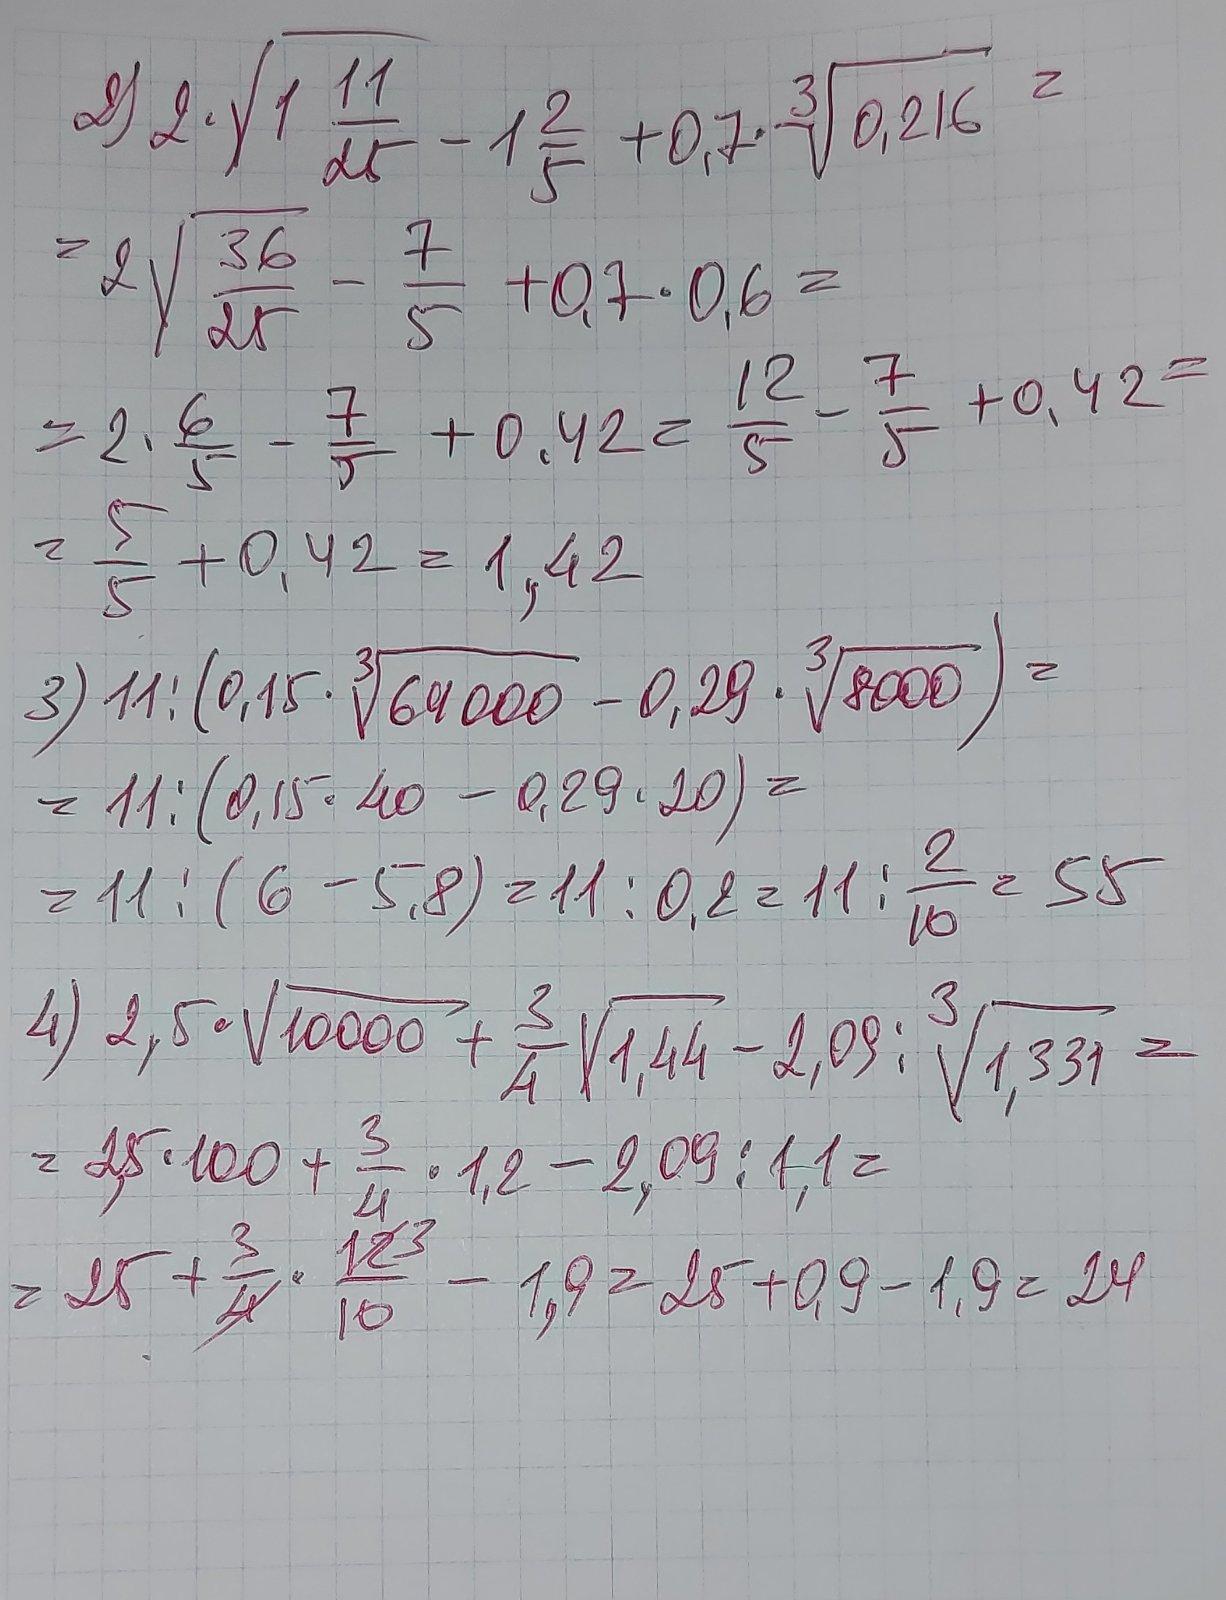 2) 2·√(1 11/25) - 1 2/5 + 0,7·∛0,216 =
= 2√(36/25) - 7/5 + 0,7·0,6 =
= 2·6/5 - 7/5 + 0.42 = 12/5 - 7/5 + 0,42 =
= 5/5 + 0,42 = 1,42
3) 11:(0,15·∛64000 - 0,29·∛8000) =
= 11:(0,15·40 - 0,29·20) =
= 11:(6 - 5,8) = 11:0,2 = 11:2/10 = 55
4) 2,5·√10000 + 3/4√1,44 - 2,09:∛1,331 =
= 2,5·100 + 3/4·1,2 - 2,09:1,1 =
= 25 + 3/4·12 3/10 - 1,9 = 25 + 0,9 - 1,9 = 24